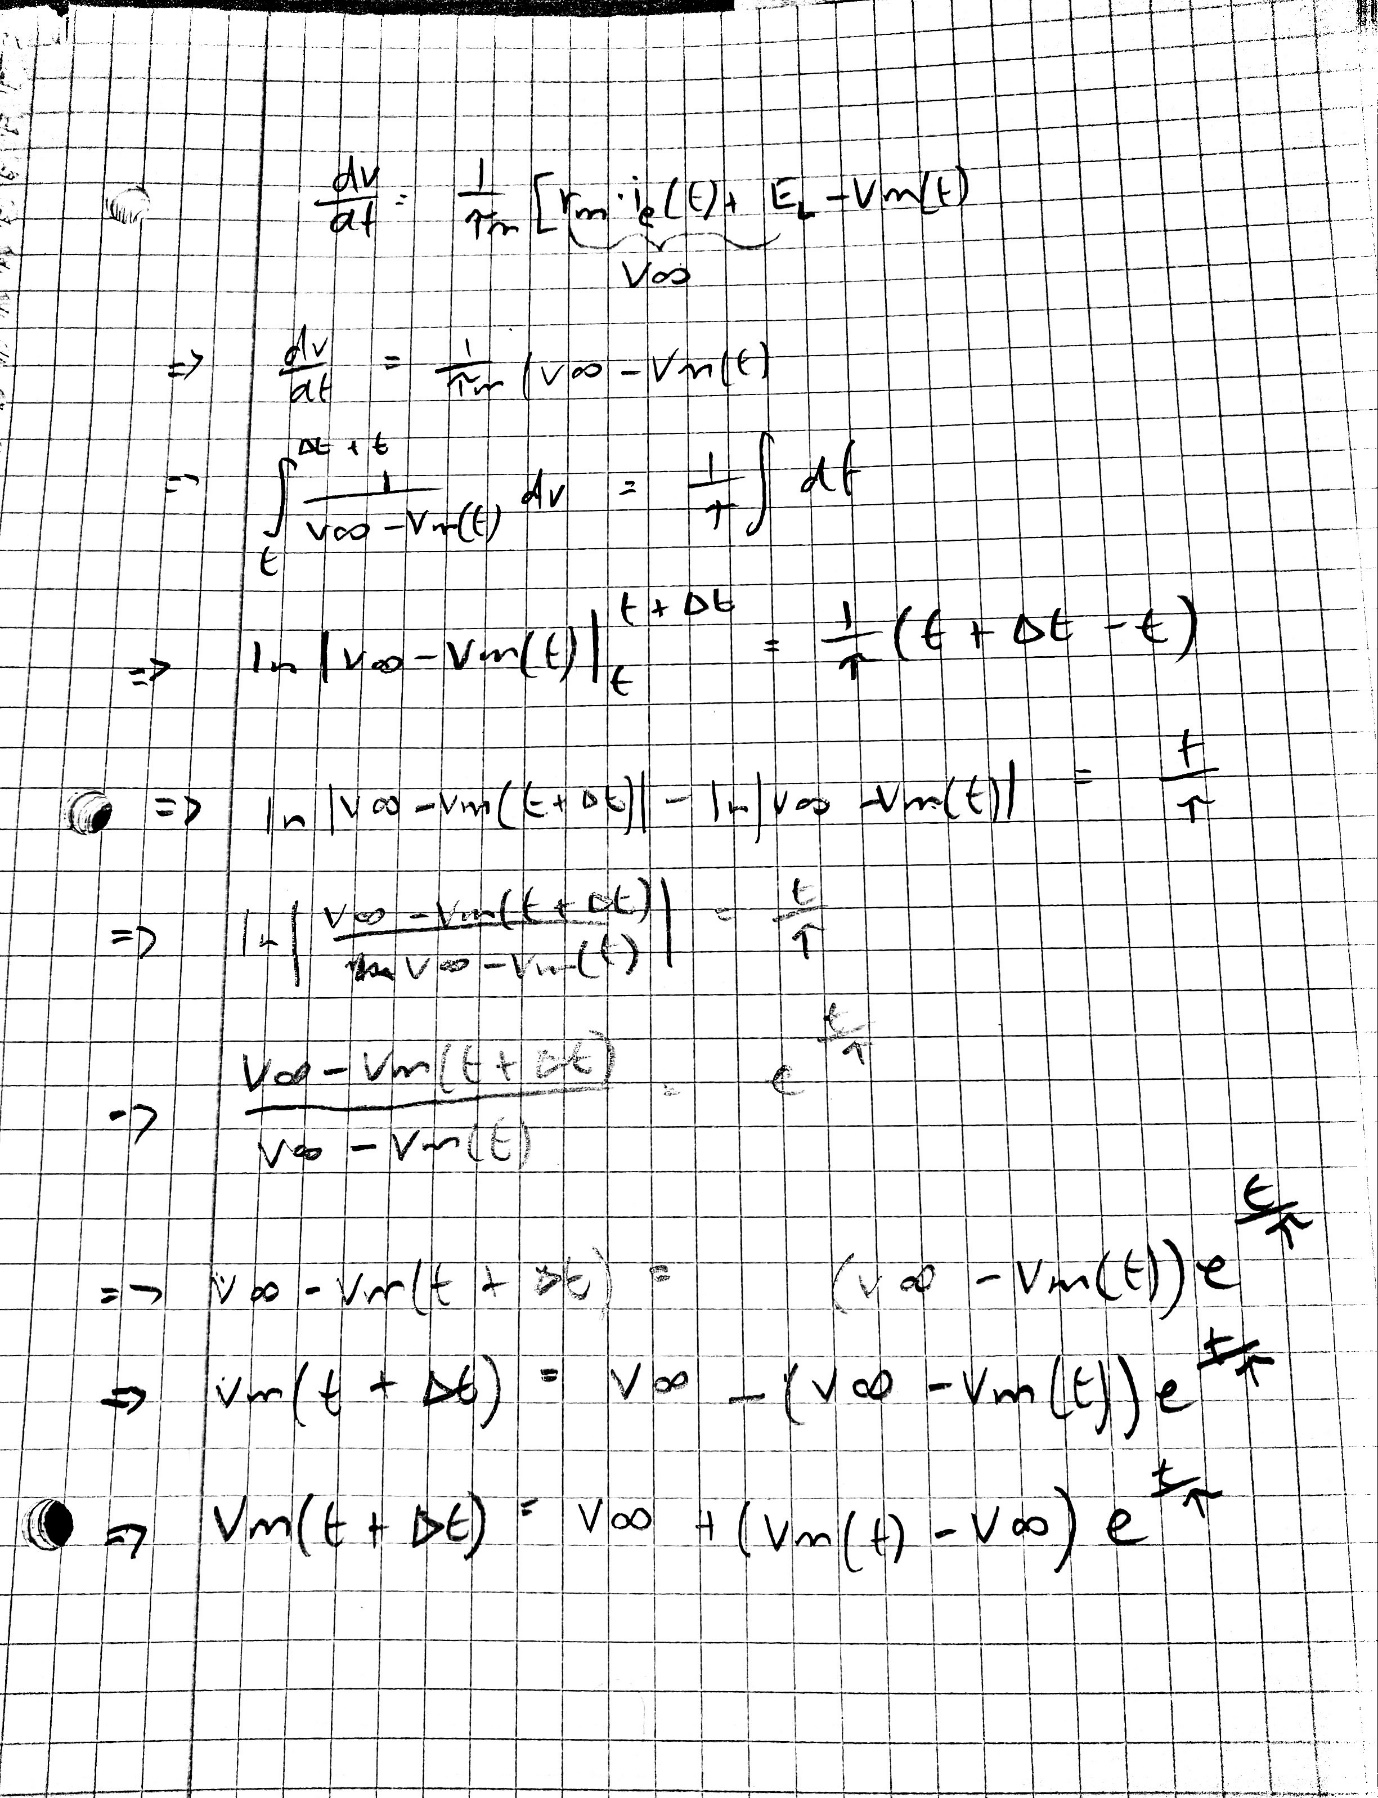 dv/dt = 1/τm [rm · ie(t) + EL - Vm(t)
V∞
=> dv/dt = 1/τm (V∞ - Vm(t)
=> ∫_t^{Δt + t} 1/(V∞ - Vm(t)) dv = 1/τ ∫ dt
=> ln |V∞ - Vm(t)| |_t^{t + Δt} = 1/τ (t + Δt - t)
=> ln |V∞ - Vm(t + Δt)| - ln |V∞ - Vm(t)| = t/τ
=> ln | (V∞ - Vm(t + Δt)) / (V∞ - Vm(t)) | = t/τ
=> (V∞ - Vm(t + Δt)) / (V∞ - Vm(t)) = e^{t/τ}
=> V∞ - Vm(t + Δt) = (V∞ - Vm(t)) e^{t/τ}
=> Vm(t + Δt) = V∞ - (V∞ - Vm(t)) e^{t/τ}
=> Vm(t + Δt) = V∞ + (Vm(t) - V∞) e^{t/τ}